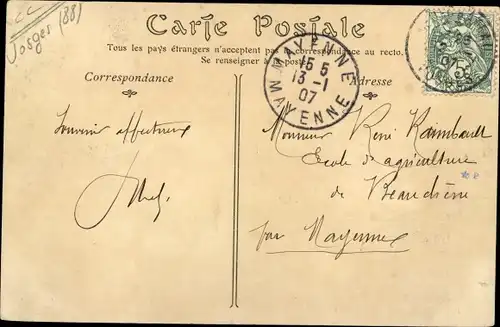 Josges (88)
Carte Postale
Tous les pays étrangers n'acceptent pas la correspondance au recto.
Se renseigner à la poste
Correspondance
Adresse
MAYENNE
15 5
13-1
07
MAYENNE
Souvenir affectueux
Monsieur René Raimbault
Ecole d'agriculture
de Beauchêne
par Mayenne